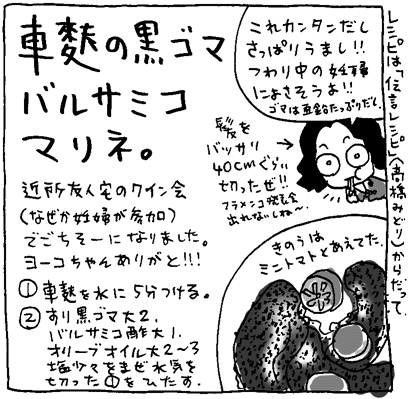 車麩の黒ゴマ
バルサミコ
マリネ。
近所友人宅のワイン会
(なぜか妊婦が参加)
でごちそーになりました。
ヨーコちゃんありがと!!!
①車麩を水に5分つける。
②すり黒ゴマ大2、
バルサミコ酢大1、
オリーブオイル大2〜3
塩少々をまぜ水気を
切った①をひたす。
これカンタンだし
さっぱりうまし!!
つわり中の妊婦
によさそうよ!!
ゴマは亜鉛たっぷりだし。
髪を
バッサリ
40cmぐらい
切ったぜ!!
フラメンコ発表会
出れないしね〜。
きのうは
ミニトマトとあえてた。
レシピは「伝言レシピ」(高橋みどり)からだって